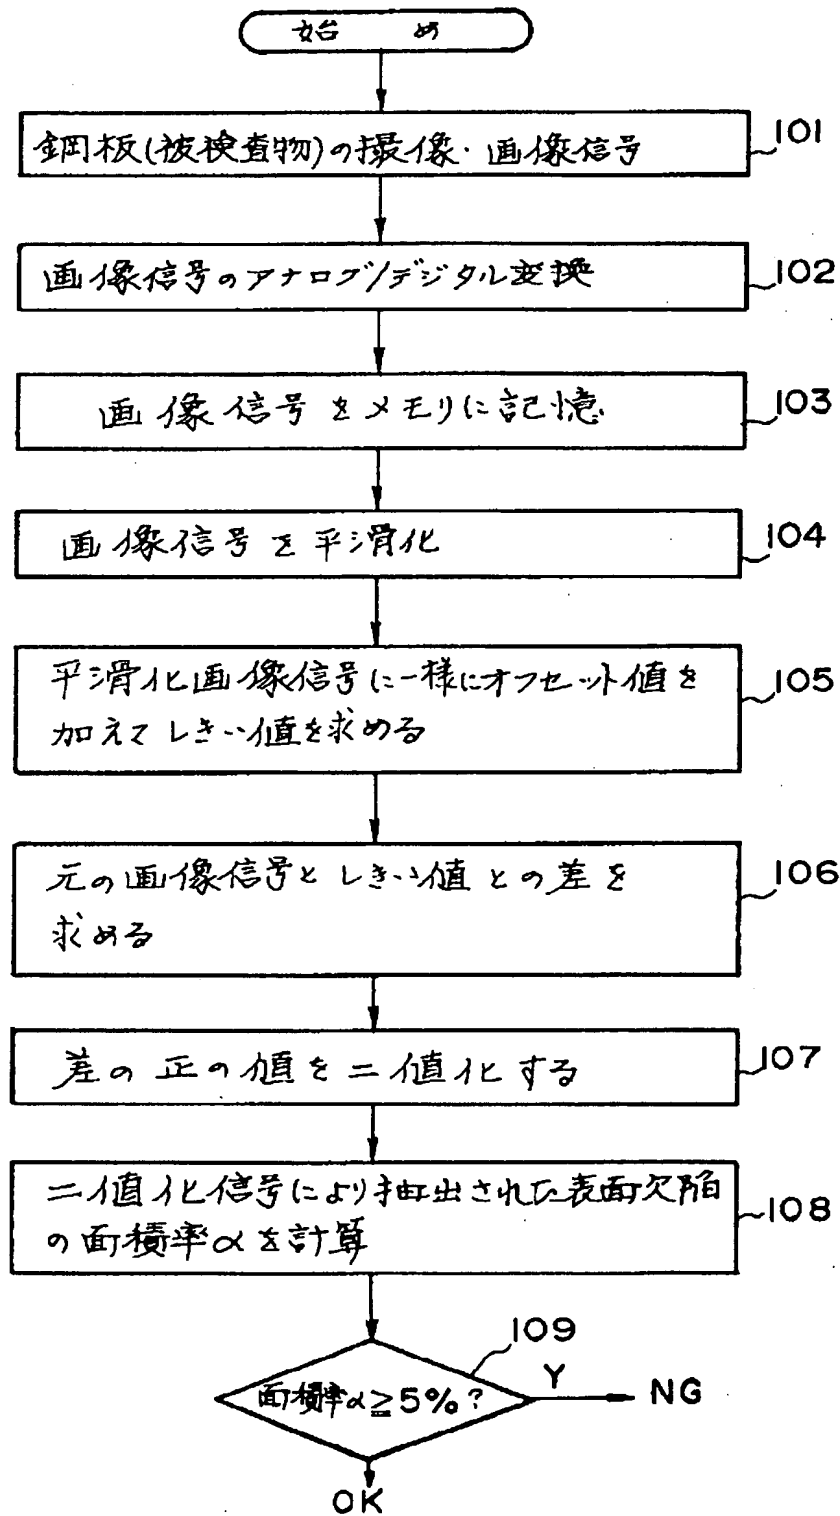 始め
鋼板(被検査物)の撮像・画像信号
101
画像信号のアナログ/デジタル変換
102
画像信号をメモリに記憶
103
画像信号を平滑化
104
平滑化画像信号に一様にオフセット値を
加えてしきい値を求める
105
元の画像信号としきい値との差を
求める
106
差の正の値を二値化する
107
二値化信号により抽出された表面欠陥
の面積率αを計算
108
109
面積率α≧5%?
Y
NG
OK